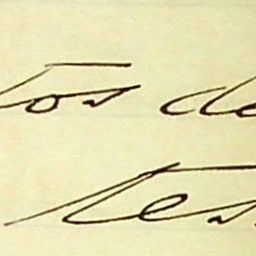 tos de
tes